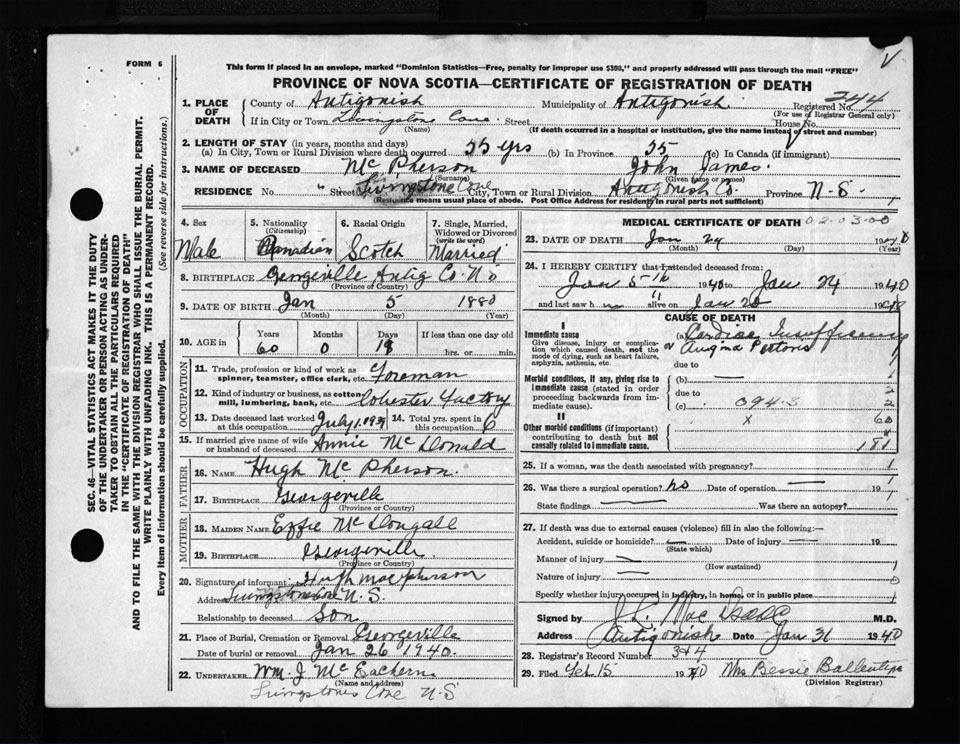 FORM 6
This form if placed in an envelope, marked "Dominion Statistics—Free, penalty for improper use $300," and properly addressed will pass through the mail "FREE"
PROVINCE OF NOVA SCOTIA—CERTIFICATE OF REGISTRATION OF DEATH
1. PLACE OF DEATH
County of Antigonish Municipality of Antigonish Registered No. 344
(For use of Registrar General only)
If in City or Town Livingstone Cove Street House No.
(Name) (If death occurred in a hospital or institution, give the name instead of street and number)
2. LENGTH OF STAY (in years, months and days)
(a) In City, Town or Rural Division where death occurred 55 yrs (b) In Province 55 (c) In Canada (if immigrant)
3. NAME OF DECEASED Mc Pherson John James.
(Surname) (Given name or names)
RESIDENCE No. " Street Livingstone Cove City, Town or Rural Division Antigonish Co. Province N-S-
(Residence means usual place of abode. Post Office Address for residents in rural parts not sufficient)
4. Sex Male
5. Nationality (Citizenship) Canadian
6. Racial Origin Scotch
7. Single, Married, Widowed or Divorced (write the word) Married
8. BIRTHPLACE Georgeville Antig Co. N.S
(Province or Country)
9. DATE OF BIRTH Jan 5 1880
(Month) (Day) (Year)
10. AGE Years Months Days If less than one day old
60 0 19 hrs. or min.
OCCUPATION
11. Trade, profession or kind of work as spinner, teamster, office clerk, etc. Foreman
12. Kind of industry or business, as cotton-mill, lumbering, bank, etc. Lobster Factory
13. Date deceased last worked at this occupation July 1, 1939
14. Total yrs. spent in this occupation 6
15. If married give name of wife or husband of deceased Annie Mc Donald
FATHER
16. NAME Hugh Mc Pherson.
17. BIRTHPLACE Georgeville
(Province or Country)
MOTHER
18. MAIDEN NAME Effie Mc Dougall
19. BIRTHPLACE Georgeville
(Province or Country)
20. Signature of informant Hugh MacPherson
Address Livingstone Cove N.S.
Relationship to deceased Son
21. Place of Burial, Cremation or Removal Georgeville
Date of burial or removal Jan 26 1940.
22. UNDERTAKER Wm. J Mc Eachern
(Name and address)
Livingstones Cove N-S
MEDICAL CERTIFICATE OF DEATH 02.03.00
23. DATE OF DEATH Jan 24 1940
(Month) (Day) (Year)
24. I HEREBY CERTIFY that I attended deceased from:
Jan 5-16 1940 to Jan 24 1940
and last saw h alive on Jan 20 19
CAUSE OF DEATH
I
Immediate cause
Give disease, injury or complication which caused death, not the mode of dying, such as heart failure, asphyxia, asthenia, etc.
(a) Cardiac Insufficiency
or Angina Pectoris
due to
Morbid conditions, if any, giving rise to immediate cause (stated in order proceeding backwards from immediate cause).
(b)
due to
(c) 094.3
II
Other morbid conditions (if important) contributing to death but not causally related to immediate cause.
x
1
3
2
60
181
25. If a woman, was the death associated with pregnancy?
26. Was there a surgical operation? no Date of operation 19
State findings Was there an autopsy?
27. If death was due to external causes (violence) fill in also the following:—
Accident, suicide or homicide? Date of injury 19
(State which)
Manner of injury
(How sustained)
Nature of injury
Specify whether injury occurred in industry, in home, or in public place
Signed by J. L. MacIsaac M.D.
Address Antigonish Date Jan 31 1940
28. Registrar's Record Number 344
29. Filed Feb 15 1940 Mrs Bessie Ballentyne
(Division Registrar)
SEC. 46—VITAL STATISTICS ACT MAKES IT THE DUTY
OF THE UNDERTAKER OR PERSON ACTING AS UNDER-
TAKER TO OBTAIN ALL THE PARTICULARS REQUIRED
IN THE "CERTIFICATE OF REGISTRATION OF DEATH"
AND TO FILE THE SAME WITH THE DIVISION REGISTRAR WHO SHALL ISSUE THE BURIAL PERMIT.
WRITE PLAINLY WITH UNFADING INK. THIS IS A PERMANENT RECORD.
Every item of information should be carefully supplied. (See reverse side for instructions.)